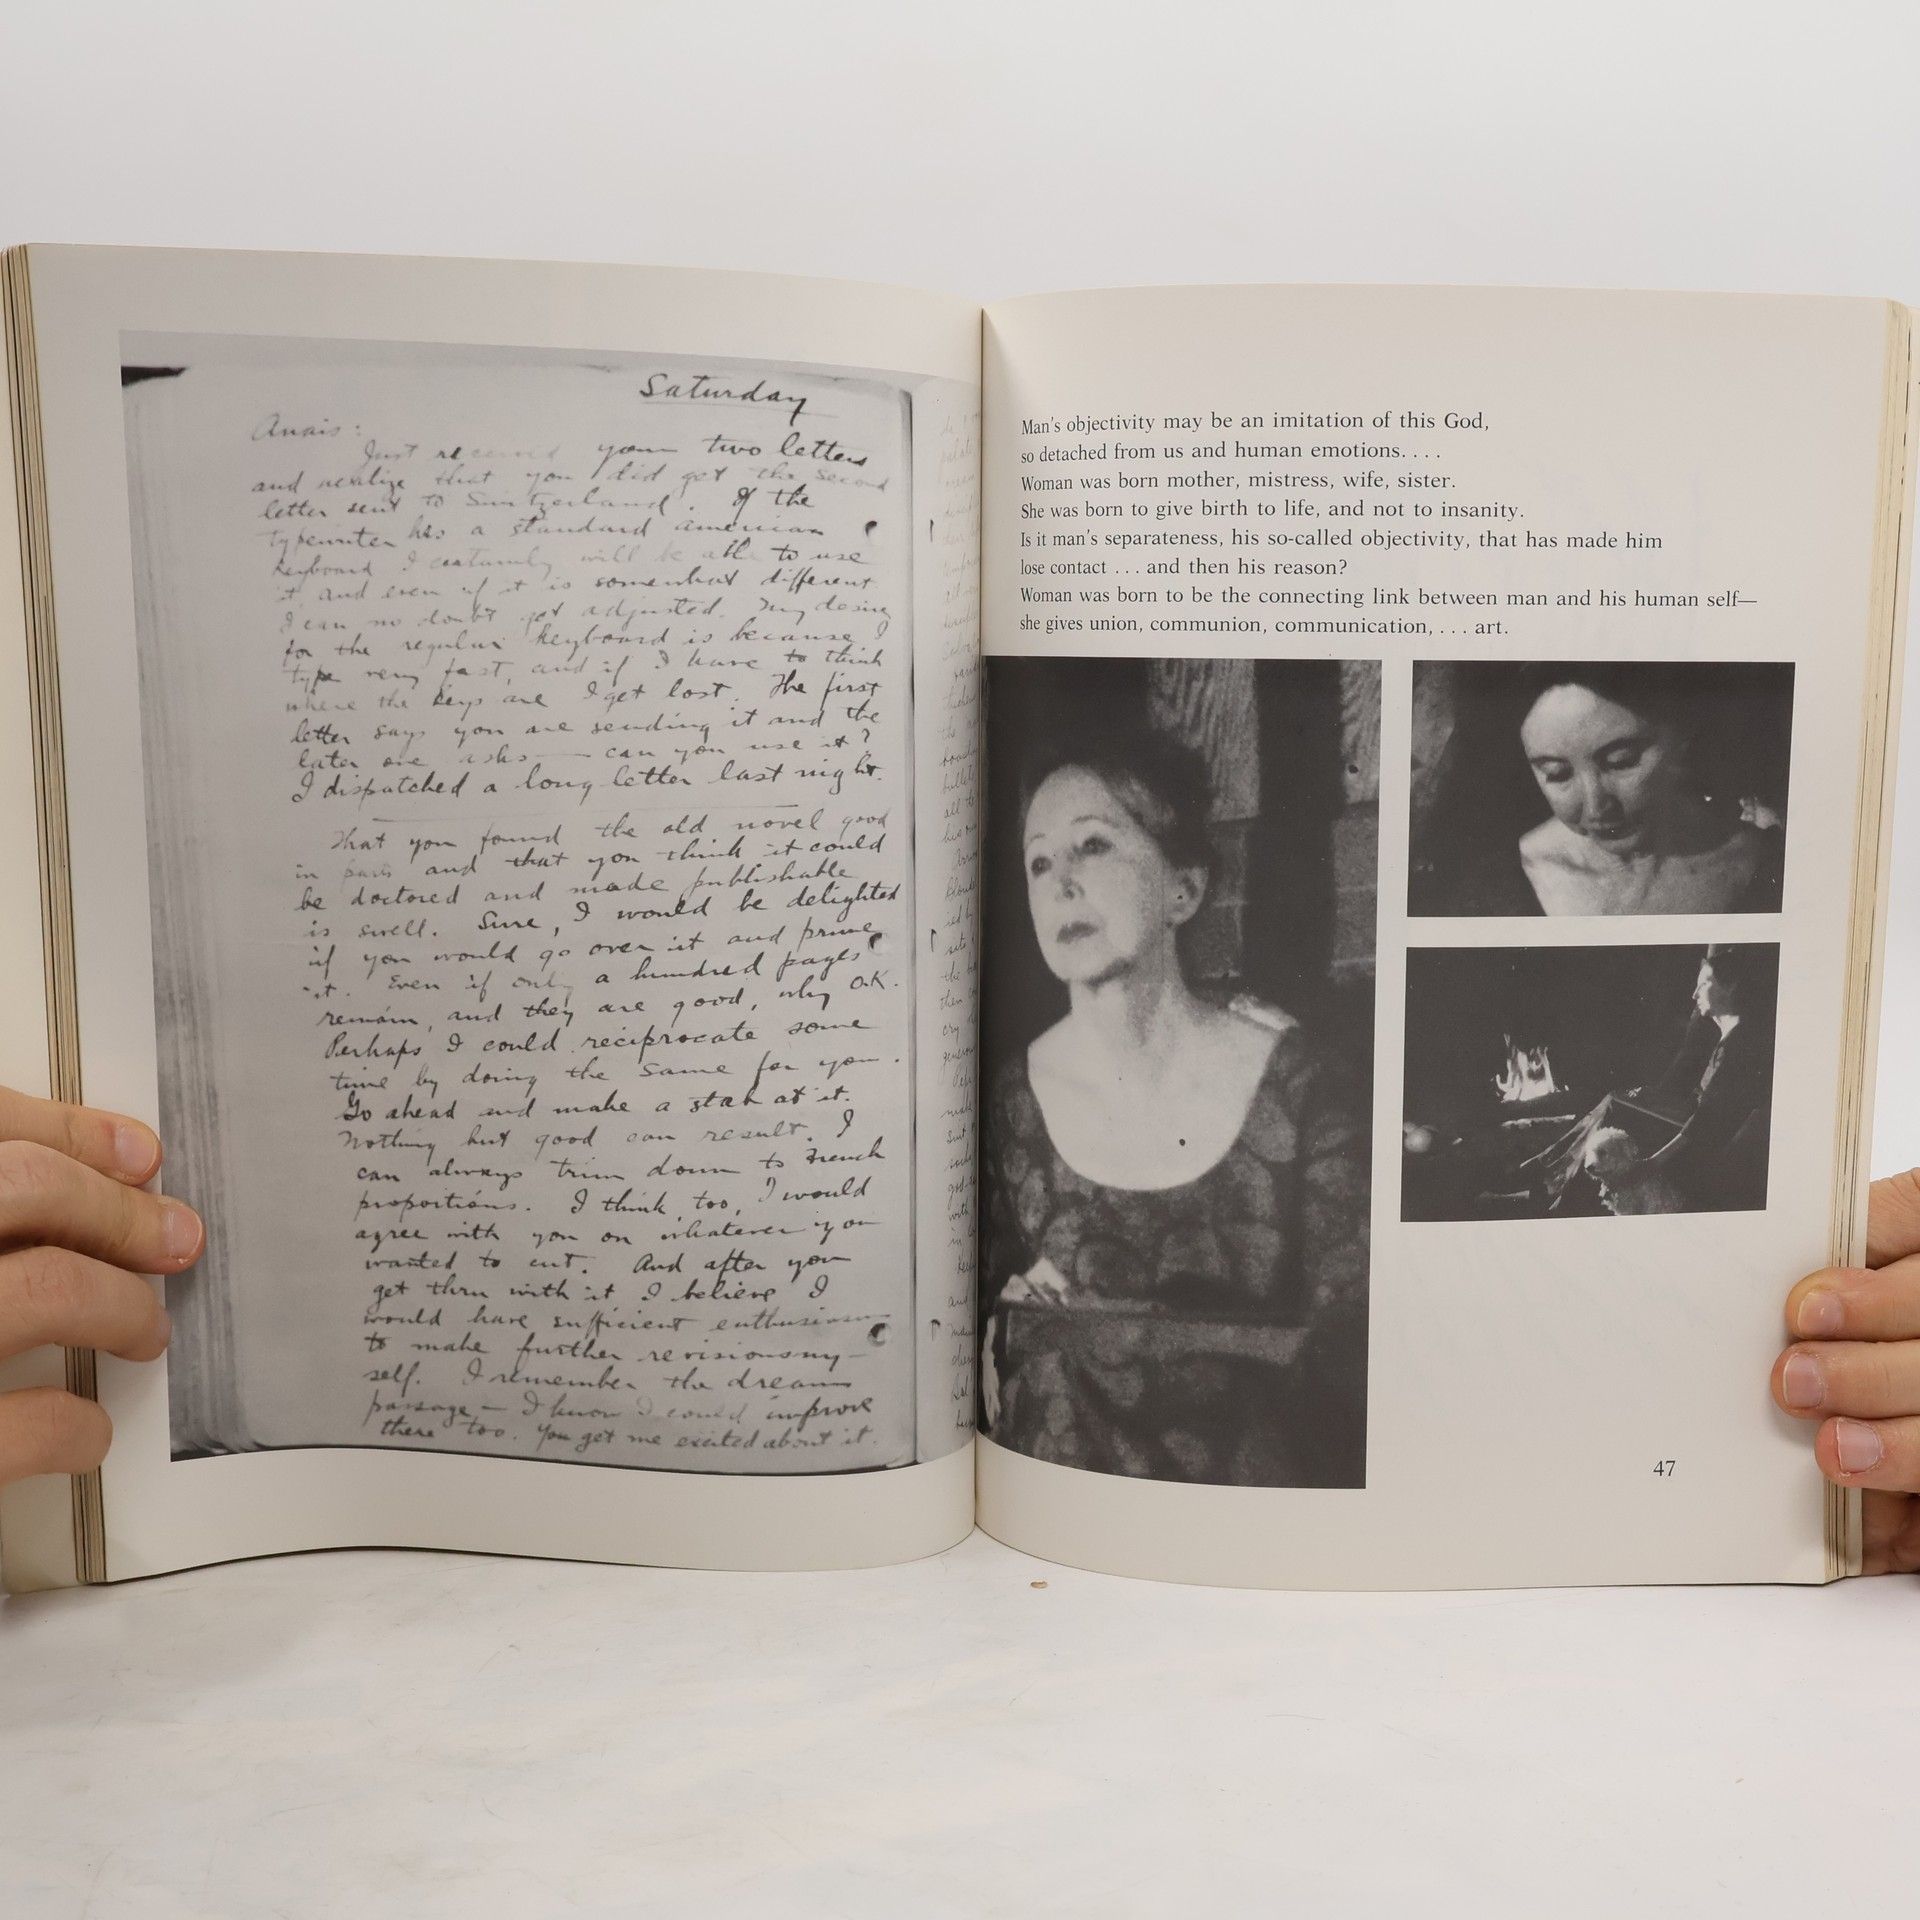 Saturday
Anais:
Just received your two letters
and realize that you did get the second
letter sent to Switzerland. If the
typewriter has a standard american
keyboard I certainly will be able to use
it, and even if it is somewhat different
I can no doubt get adjusted. My desire
for the regular keyboard is because I
type very fast, and if I have to think
where the keys are I get lost. The first
letter says you are sending it and the
later one asks — can you use it?
I dispatched a long letter last night.
That you found the old novel good
in parts and that you think it could
be doctored and made publishable
is swell. Sure, I would be delighted
if you would go over it and prune
it. Even if only a hundred pages
remain, and they are good, why O.K.
Perhaps I could reciprocate some
time by doing the same for you.
Go ahead and make a stab at it.
Nothing but good can result. I
can always trim down to French
proportions. I think, too, I would
agree with you on whatever you
wanted to cut. And after you
get thru with it I believe I
would have sufficient enthusiasm
to make further revisions my-
self. I remember the dream
passage — I know I could improve
there too. You get me excited about it.
Man's objectivity may be an imitation of this God,
so detached from us and human emotions. . . .
Woman was born mother, mistress, wife, sister.
She was born to give birth to life, and not to insanity.
Is it man's separateness, his so-called objectivity, that has made him
lose contact . . . and then his reason?
Woman was born to be the connecting link between man and his human self—
she gives union, communion, communication, . . . art.
47